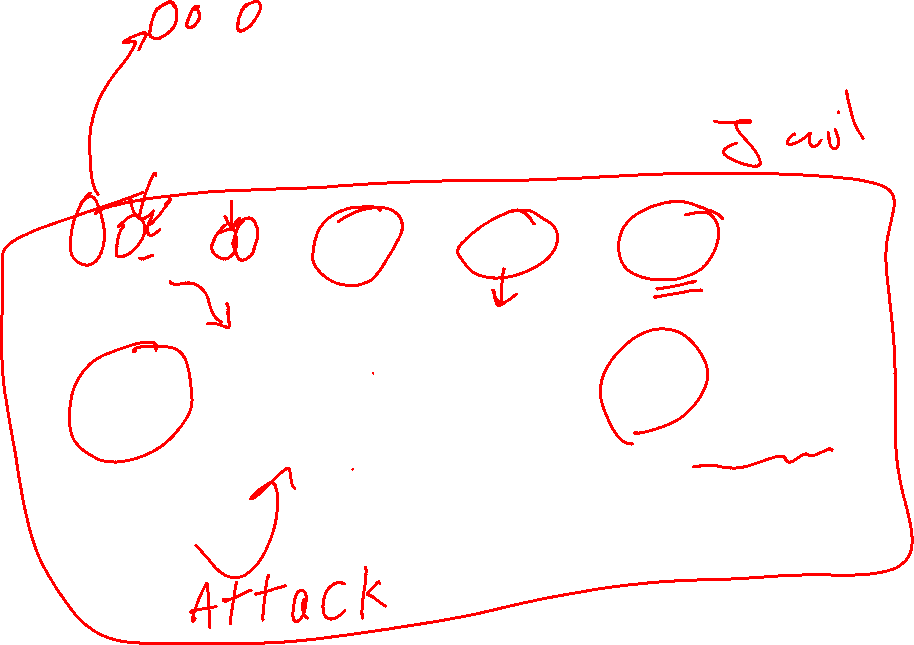 Jail
Attack